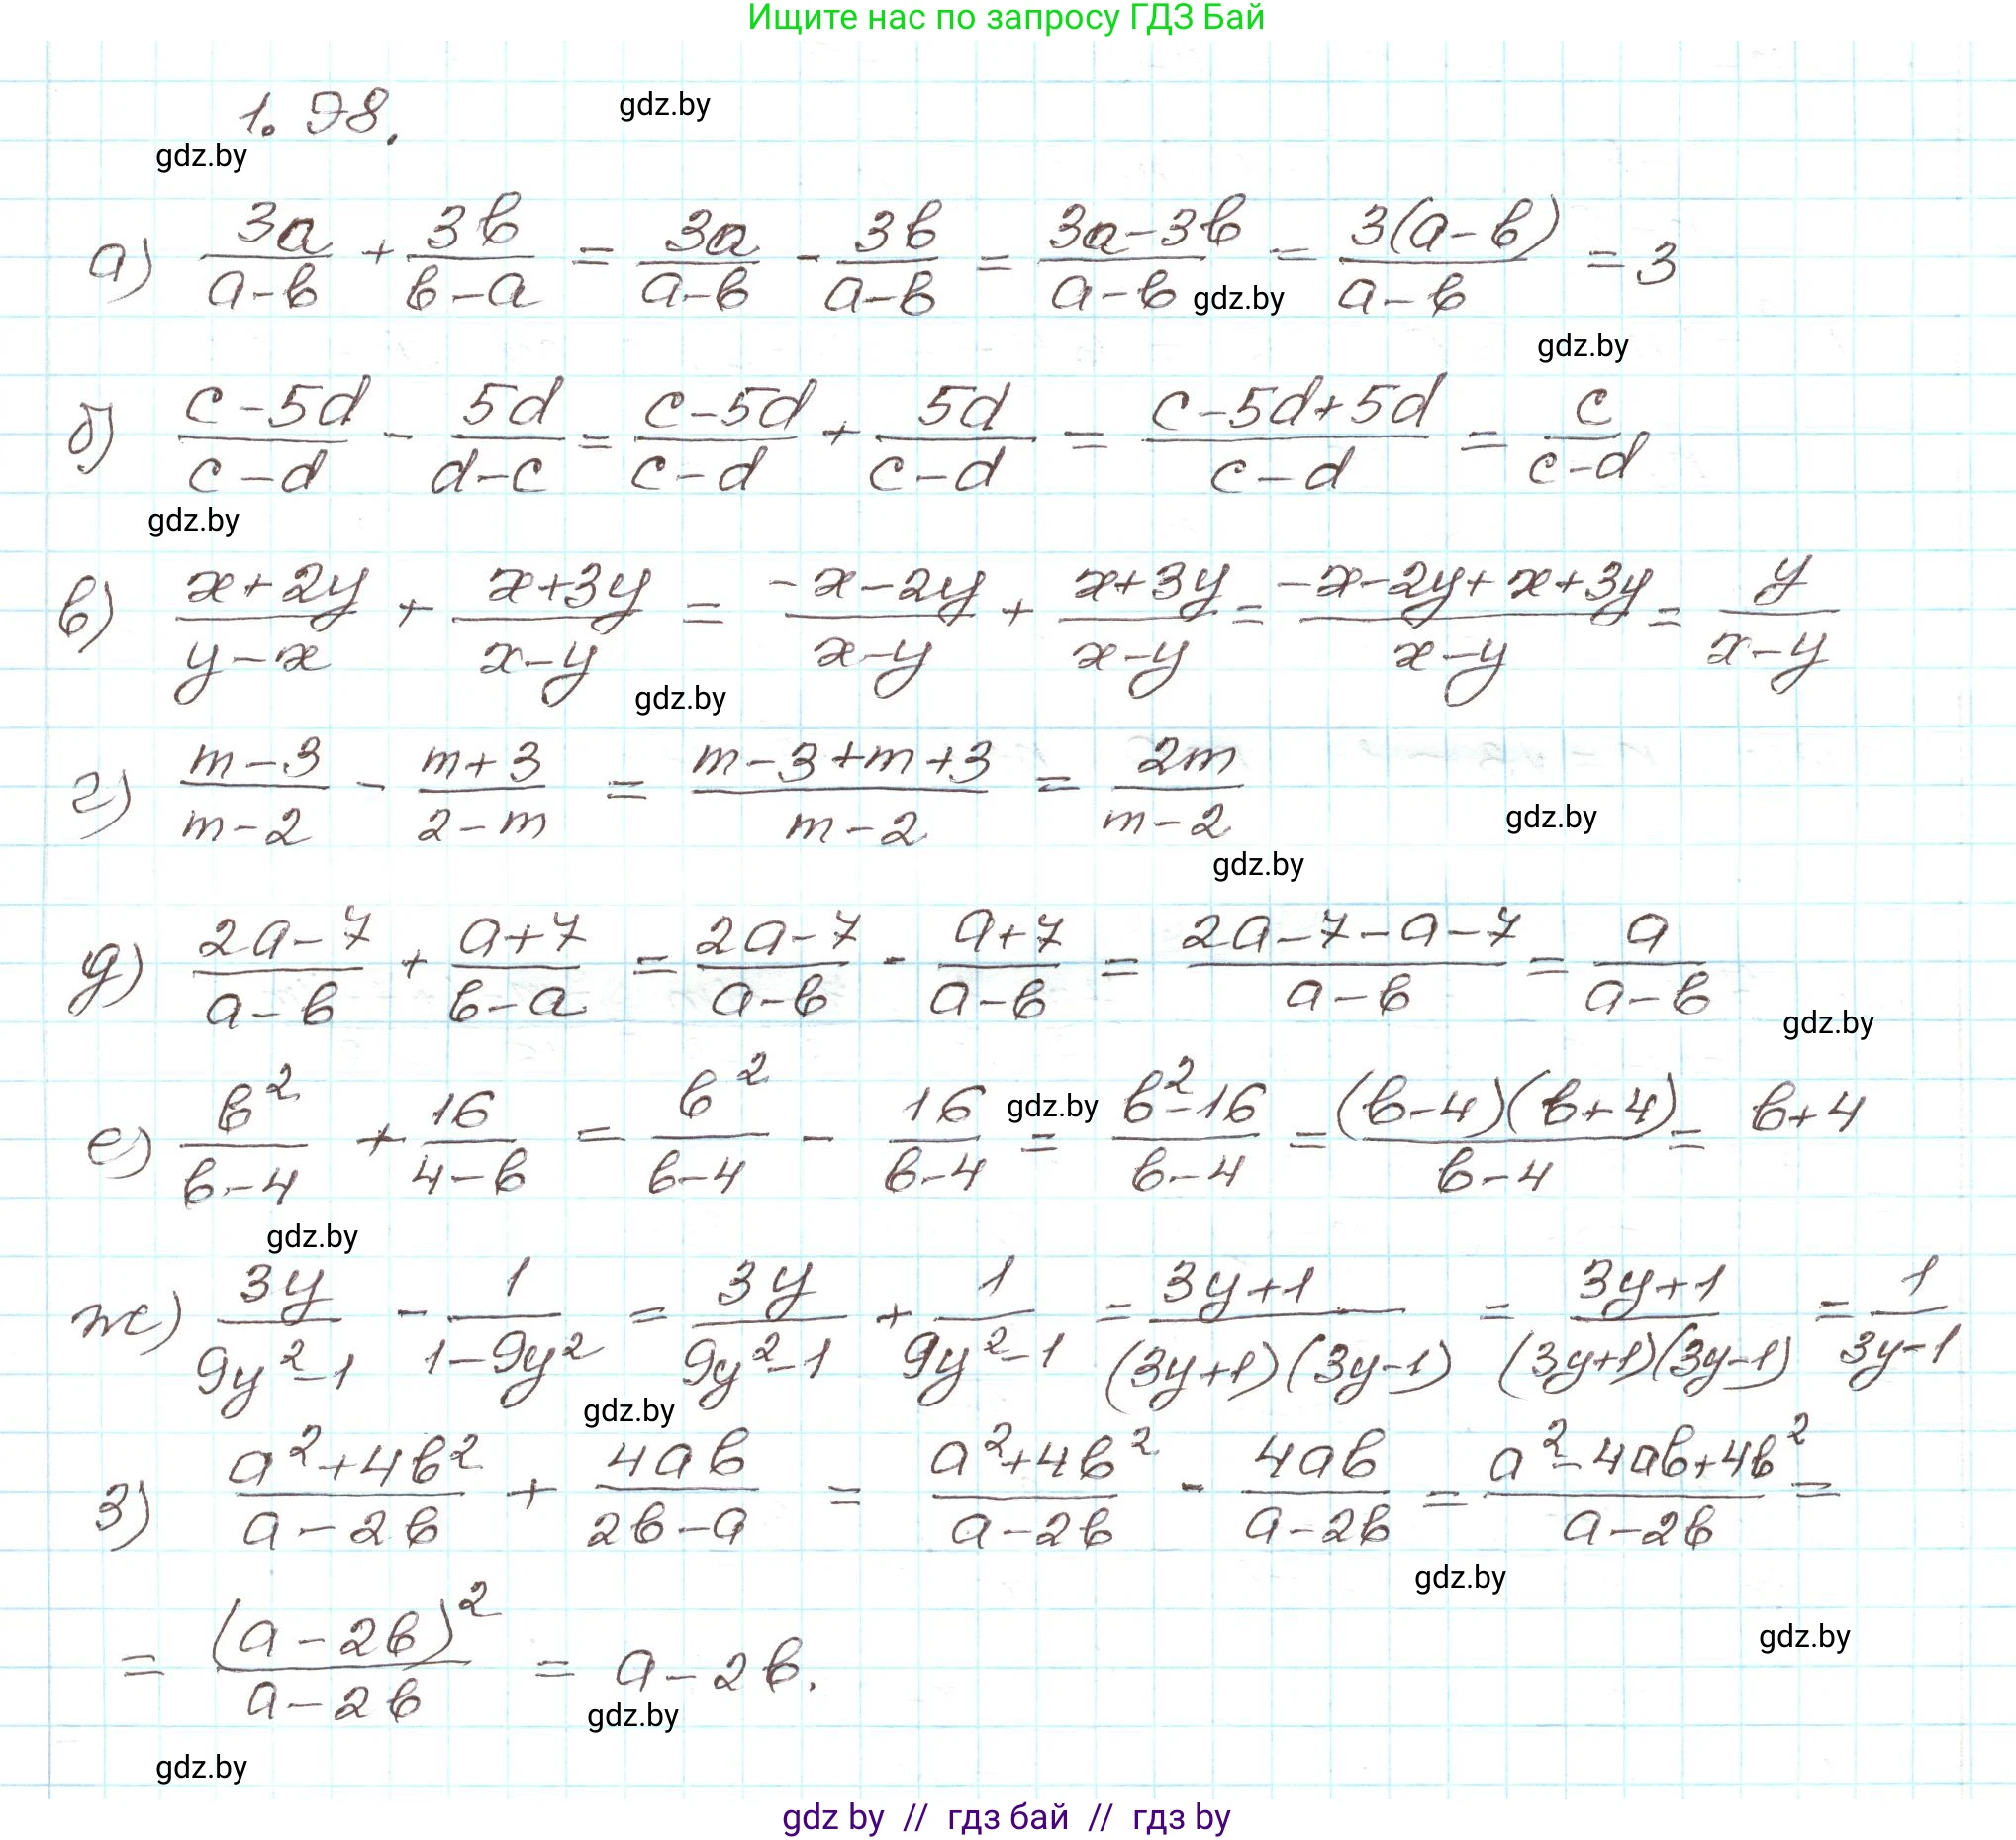 Ищите нас по запросу ГДЗ Бай
1.98.
gdz.by
gdz.by
а) 3a/(a-b) + 3b/(b-a) = 3a/(a-b) - 3b/(a-b) = (3a-3b)/(a-b) = 3(a-b)/(a-b) = 3
gdz.by
gdz.by
б) (c-5d)/(c-d) - 5d/(d-c) = (c-5d)/(c-d) + 5d/(c-d) = (c-5d+5d)/(c-d) = c/(c-d)
gdz.by
в) (x+2y)/(y-x) + (x+3y)/(x-y) = (-x-2y)/(x-y) + (x+3y)/(x-y) = (-x-2y+x+3y)/(x-y) = y/(x-y)
gdz.by
г) (m-3)/(m-2) - (m+3)/(2-m) = (m-3+m+3)/(m-2) = 2m/(m-2)
gdz.by
gdz.by
д) (2a-7)/(a-b) + (a+7)/(b-a) = (2a-7)/(a-b) - (a+7)/(a-b) = (2a-7-a-7)/(a-b) = a/(a-b)
gdz.by
е) b²/(b-4) + 16/(4-b) = b²/(b-4) - 16/(b-4) = (b²-16)/(b-4) = (b-4)(b+4)/(b-4) = b+4
gdz.by
gdz.by
ж) 3y/(9y²-1) - 1/(1-9y²) = 3y/(9y²-1) + 1/(9y²-1) = (3y+1)/((3y+1)(3y-1)) = (3y+1)/((3y+1)(3y-1)) = 1/(3y-1)
gdz.by
з) (a²+4b²)/(a-2b) + 4ab/(2b-a) = (a²+4b²)/(a-2b) - 4ab/(a-2b) = (a²-4ab+4b²)/(a-2b) =
gdz.by
= (a-2b)²/(a-2b) = a-2b.
gdz.by
gdz.by
gdz.by
gdz by // гдз бай // гдз by